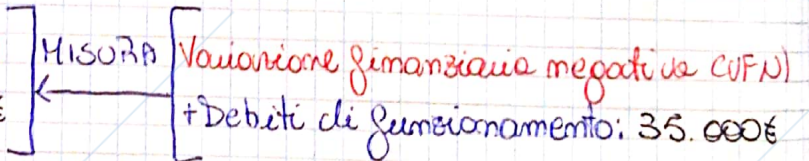 MISURA
Variazione finanziaria negativa (VFN)
+Debiti di funzionamento: 35.000€